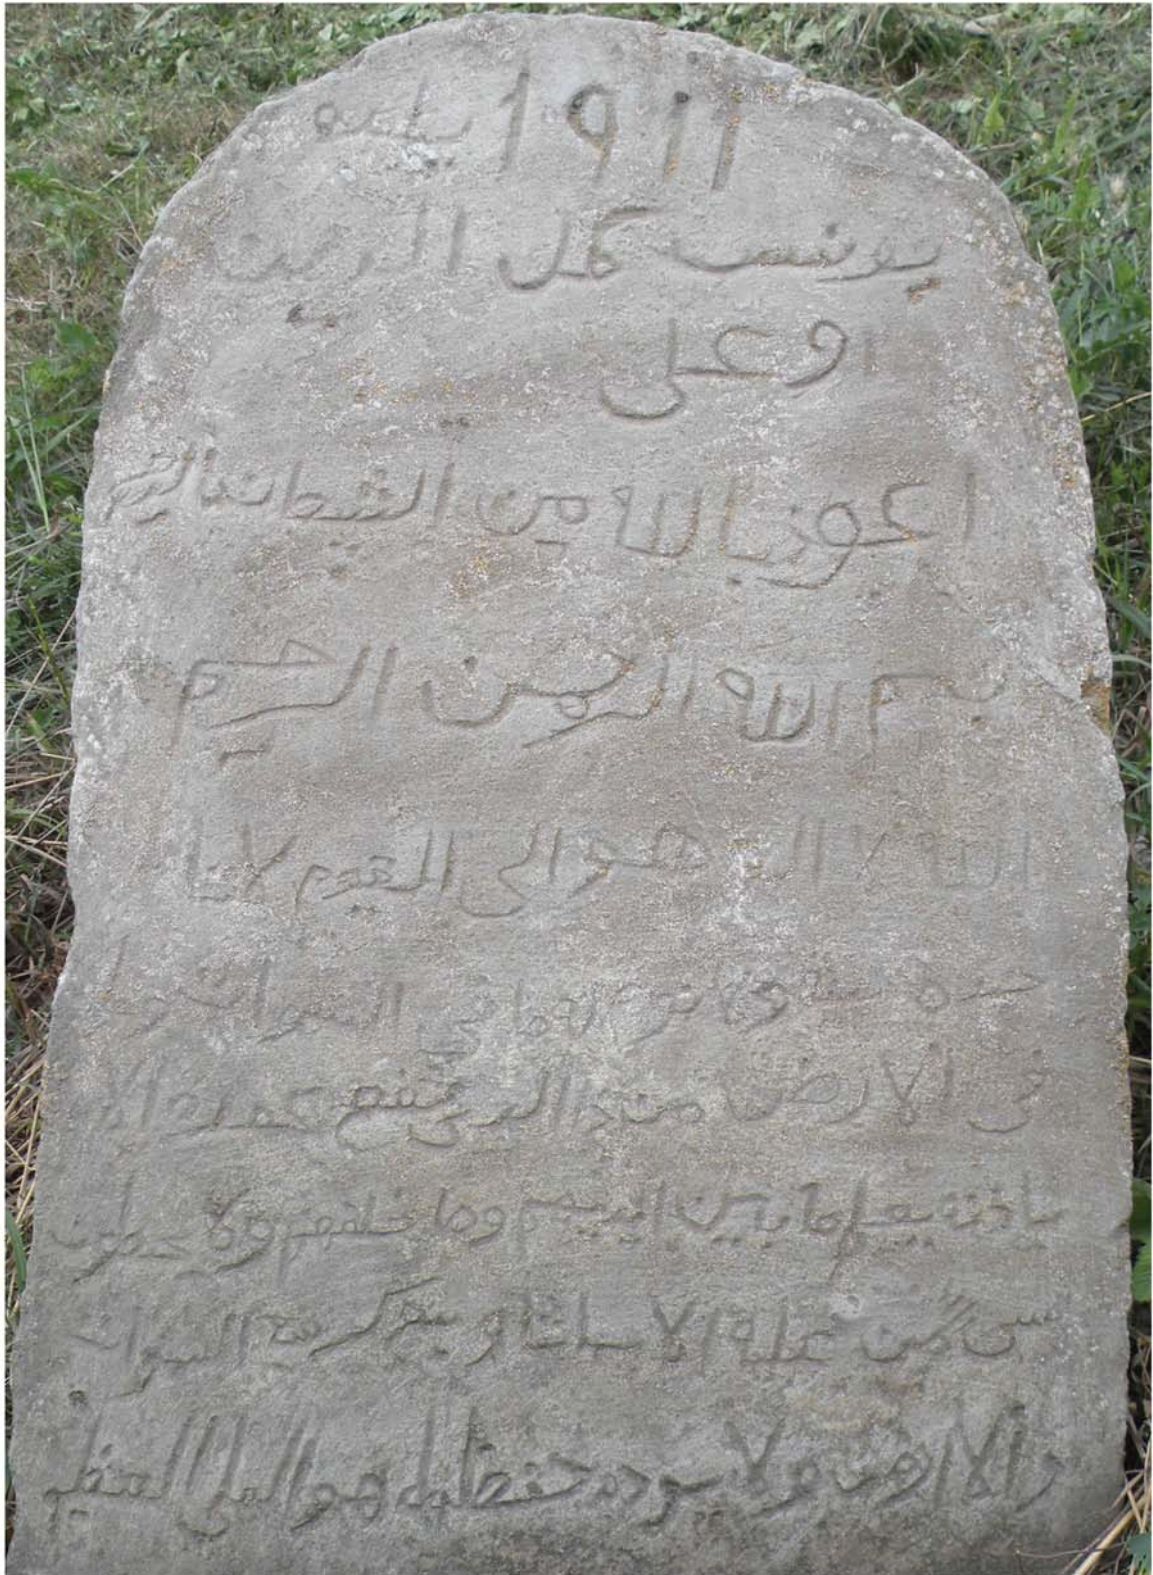 ١٩١١ يلده
يونس كمل الدين
اوغلى
اعوذ بالله من الشيطان الرجيم
بسم الله الرحمن الرحيم
الله لا اله هو الحي القيوم لا تا
خذه سنة ولا نوم له ما في السموات وما
في الارض من ذا الذي يشفع عنده الا
باذنه يعلم ما بين ايديهم وما خلفهم ولا يحيطون
بشي من علمه الا بما شا وسع كرسيه السموات
والارض ولا يوده حفظهما وهو العلي العظيم